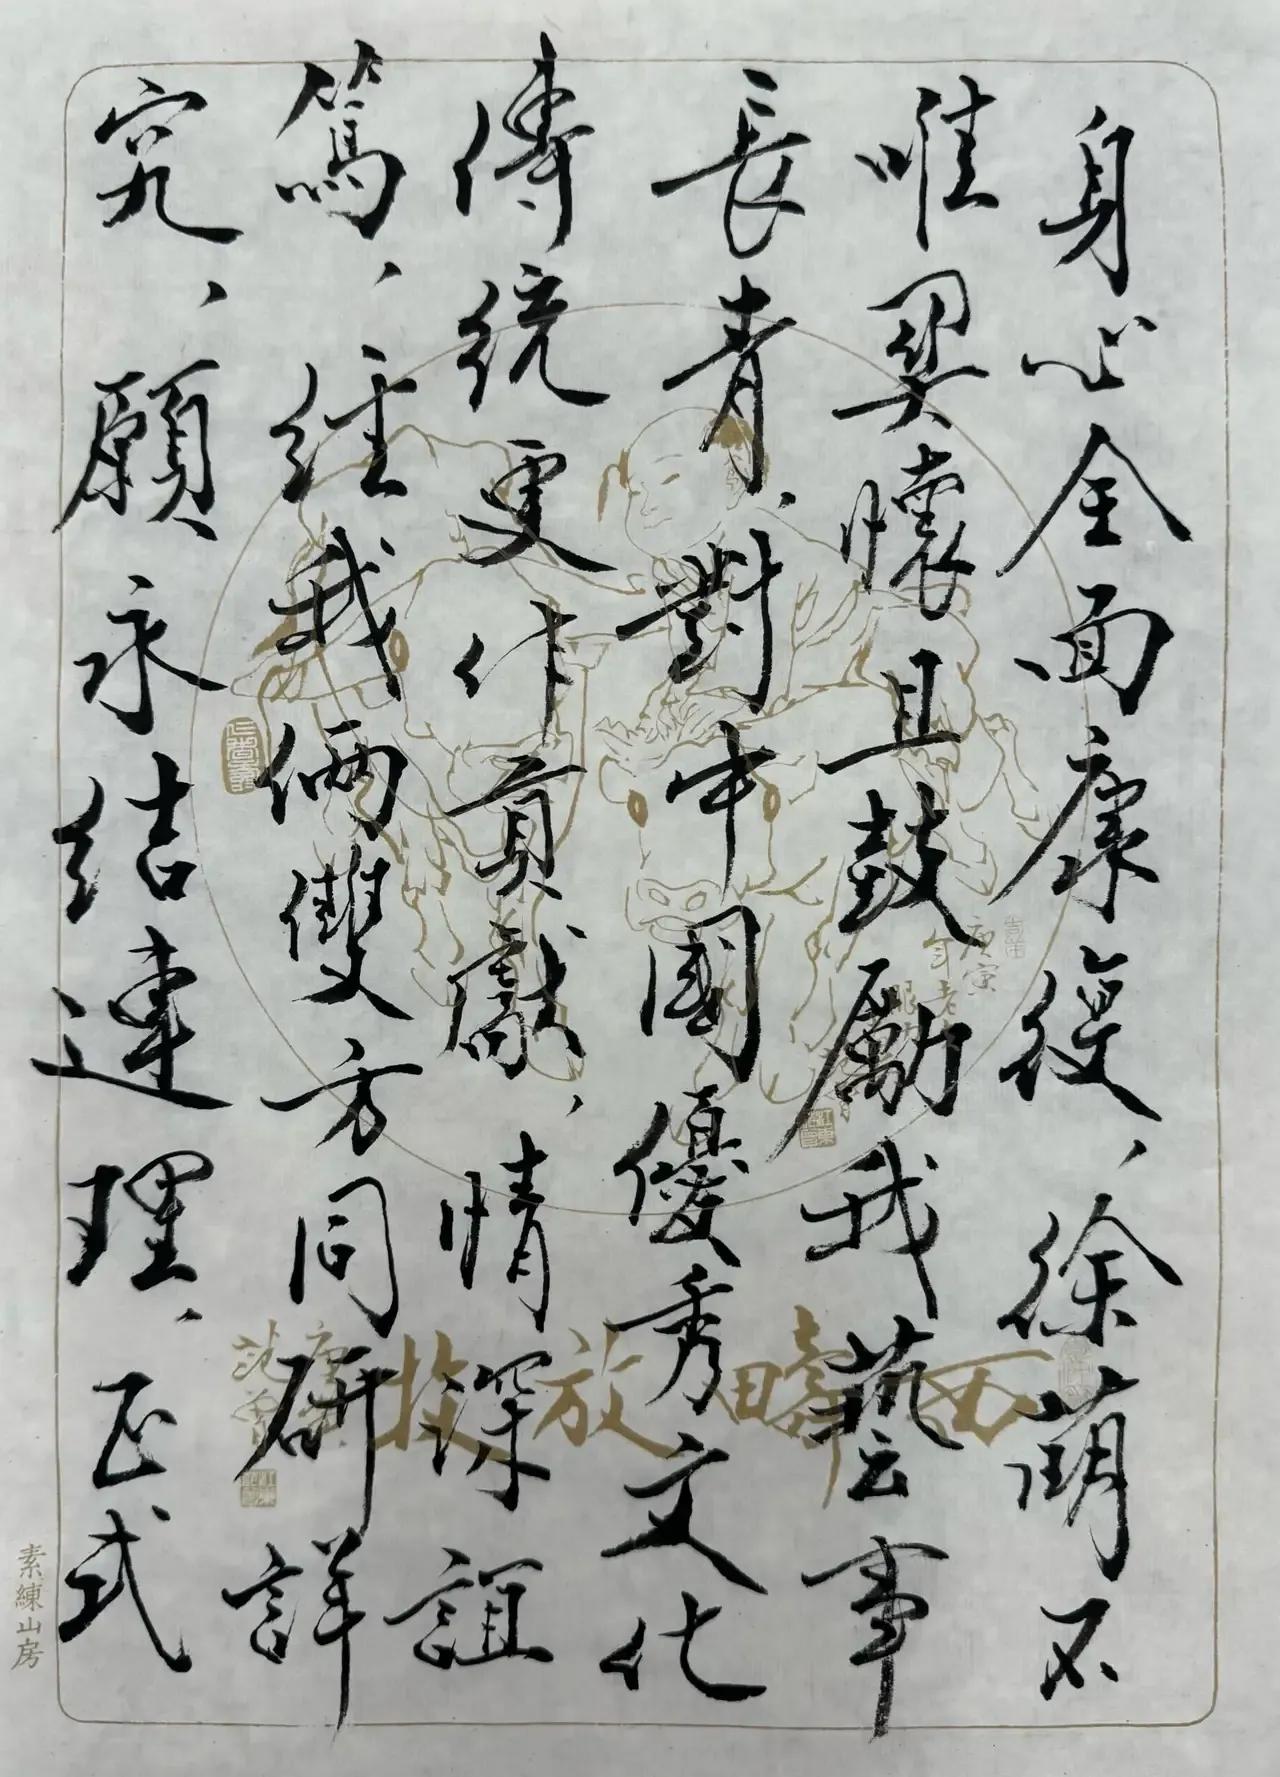 身心全面康復、徐萌不
唯異懷且鼓勵我藝事
長青、對中國優秀文化
傳統更作貢獻、情深誼
篤、經我倆雙方同研詳
究、願永結連理、正式
西疇放牧
庚寅
素練山房